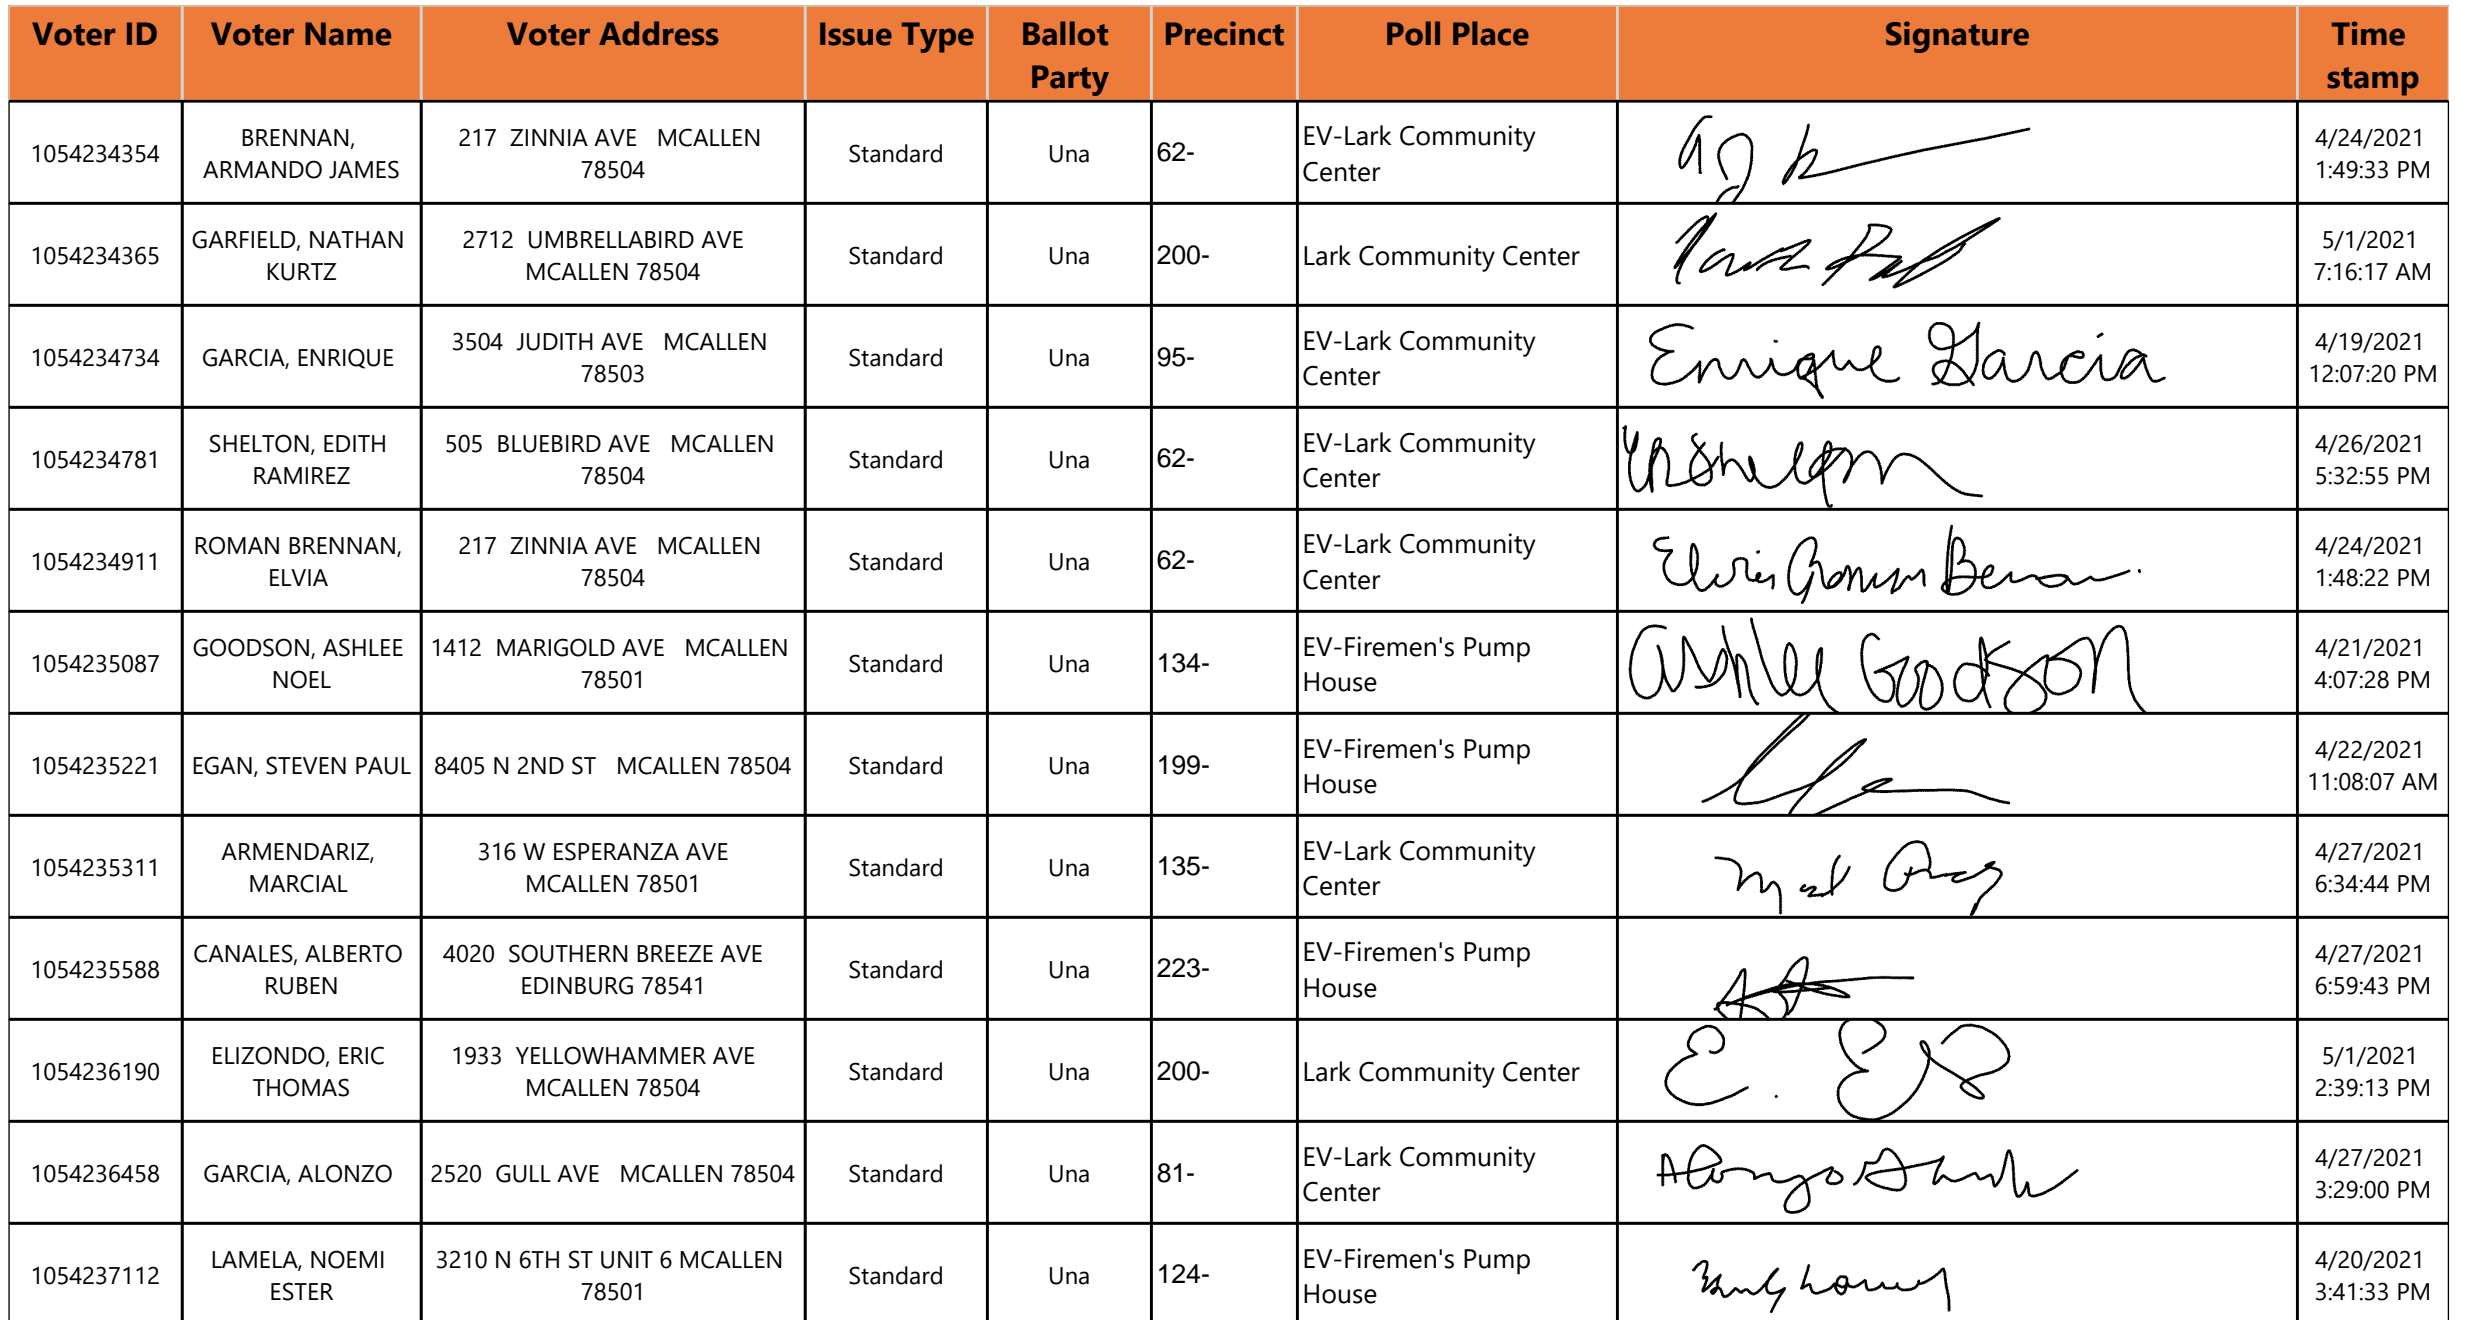 Voter ID Voter Name Voter Address Issue Type Ballot Party Precinct Poll Place Signature Time stamp
1054234354 BRENNAN, ARMANDO JAMES 217 ZINNIA AVE MCALLEN 78504 Standard Una 62- EV-Lark Community Center 4/24/2021 1:49:33 PM
1054234365 GARFIELD, NATHAN KURTZ 2712 UMBRELLABIRD AVE MCALLEN 78504 Standard Una 200- Lark Community Center 5/1/2021 7:16:17 AM
1054234734 GARCIA, ENRIQUE 3504 JUDITH AVE MCALLEN 78503 Standard Una 95- EV-Lark Community Center Enrique Garcia 4/19/2021 12:07:20 PM
1054234781 SHELTON, EDITH RAMIREZ 505 BLUEBIRD AVE MCALLEN 78504 Standard Una 62- EV-Lark Community Center 4/26/2021 5:32:55 PM
1054234911 ROMAN BRENNAN, ELVIA 217 ZINNIA AVE MCALLEN 78504 Standard Una 62- EV-Lark Community Center 4/24/2021 1:48:22 PM
1054235087 GOODSON, ASHLEE NOEL 1412 MARIGOLD AVE MCALLEN 78501 Standard Una 134- EV-Firemen's Pump House Ashlee Goodson 4/21/2021 4:07:28 PM
1054235221 EGAN, STEVEN PAUL 8405 N 2ND ST MCALLEN 78504 Standard Una 199- EV-Firemen's Pump House 4/22/2021 11:08:07 AM
1054235311 ARMENDARIZ, MARCIAL 316 W ESPERANZA AVE MCALLEN 78501 Standard Una 135- EV-Lark Community Center 4/27/2021 6:34:44 PM
1054235588 CANALES, ALBERTO RUBEN 4020 SOUTHERN BREEZE AVE EDINBURG 78541 Standard Una 223- EV-Firemen's Pump House 4/27/2021 6:59:43 PM
1054236190 ELIZONDO, ERIC THOMAS 1933 YELLOWHAMMER AVE MCALLEN 78504 Standard Una 200- Lark Community Center 5/1/2021 2:39:13 PM
1054236458 GARCIA, ALONZO 2520 GULL AVE MCALLEN 78504 Standard Una 81- EV-Lark Community Center 4/27/2021 3:29:00 PM
1054237112 LAMELA, NOEMI ESTER 3210 N 6TH ST UNIT 6 MCALLEN 78501 Standard Una 124- EV-Firemen's Pump House 4/20/2021 3:41:33 PM